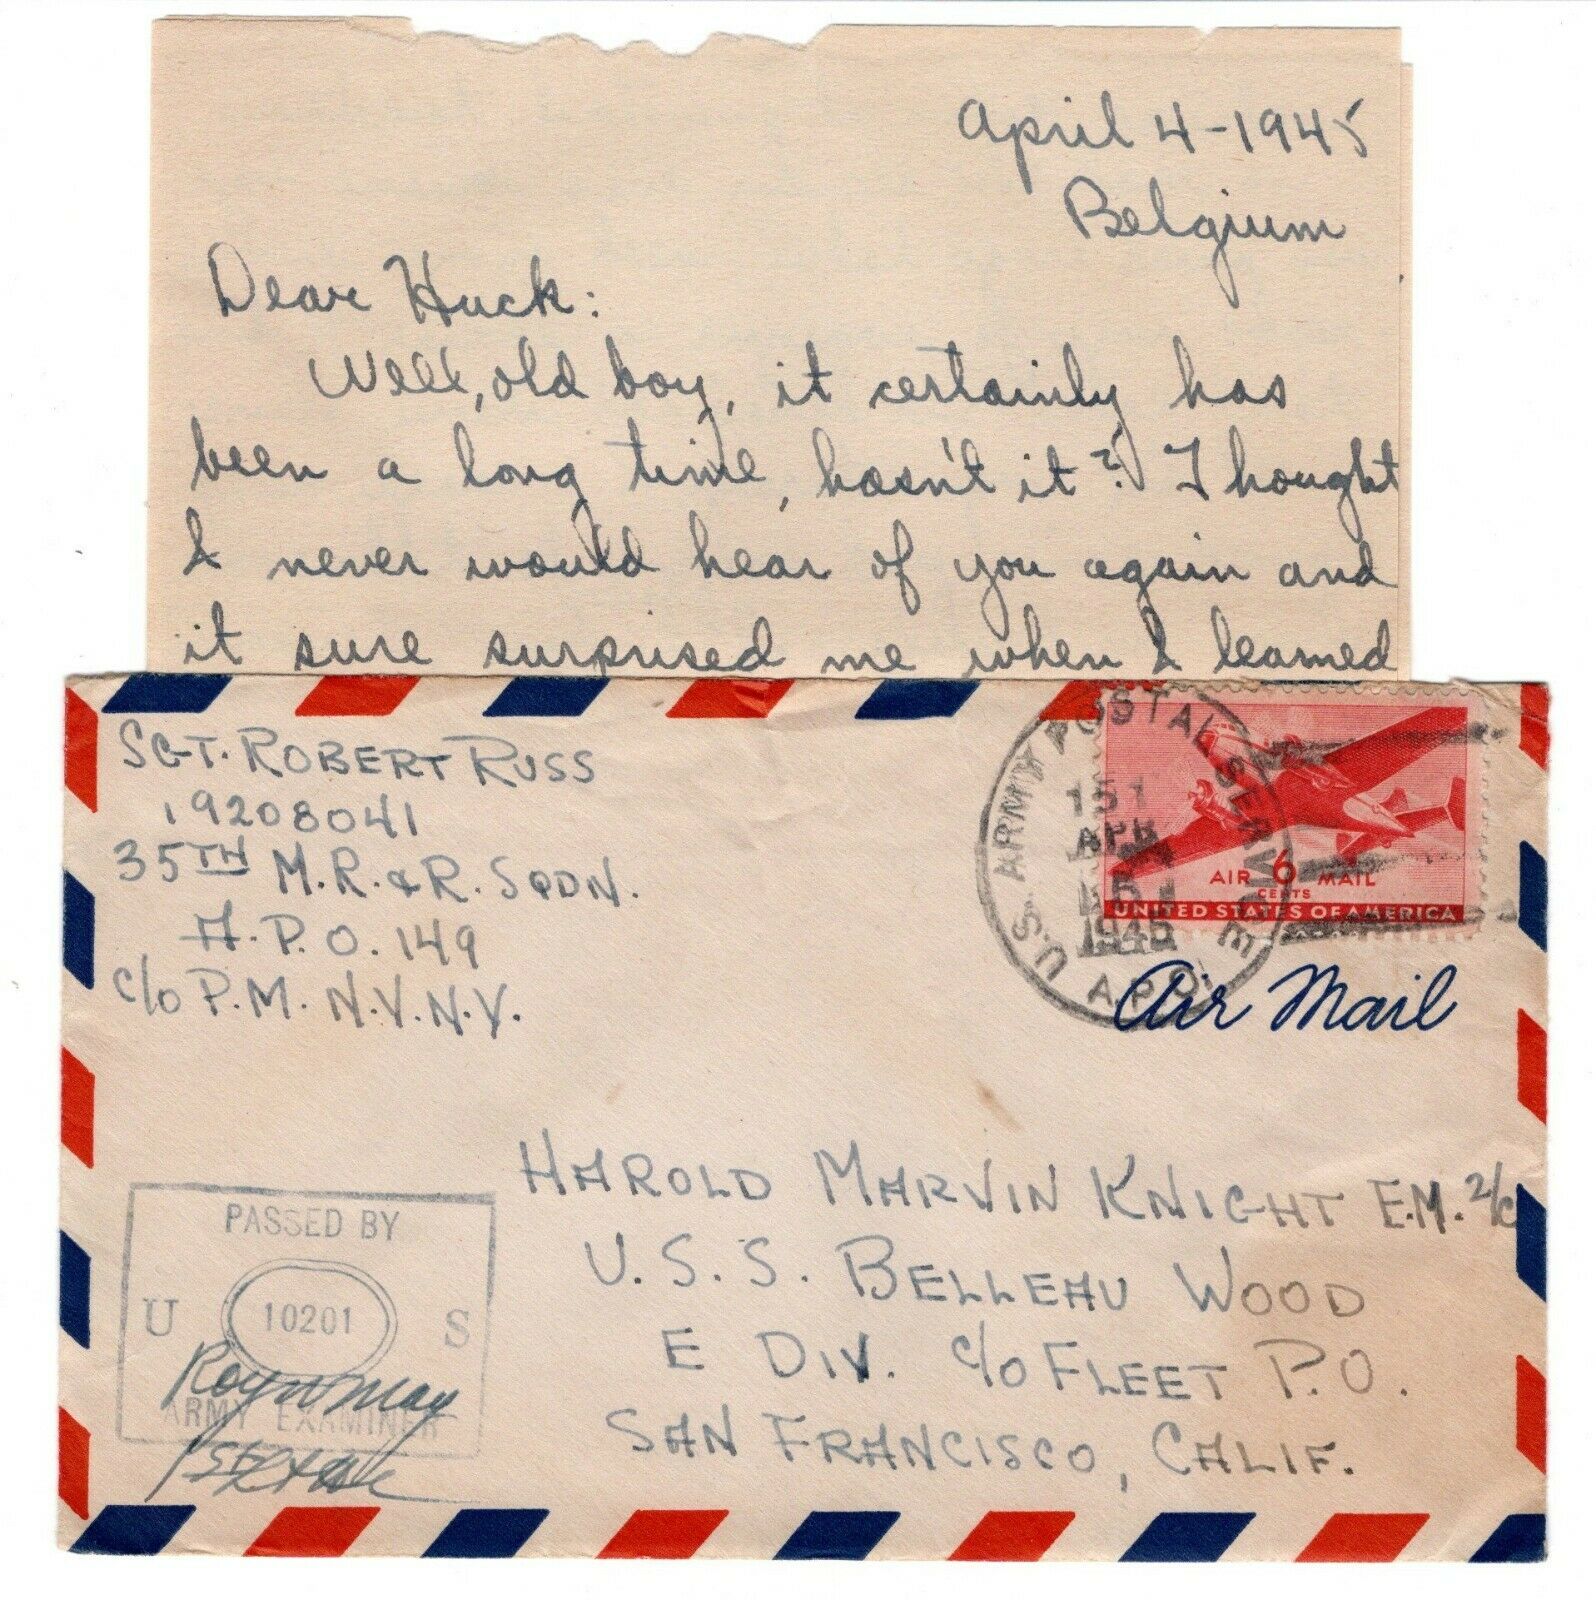 April 4-1945
Belgium
Dear Huck:
Well, old boy, it certainly has
been a long time, hasn't it? I hought
I never would hear of you again and
it sure surprised me when I learned
SGT. ROBERT RUSS
19208041
35TH M.R. & R. SQDN.
A.P.O. 149
c/o P.M. N.Y. N.Y.
U.S. ARMY POSTAL SERVICE
APR
1945
A.P.O.
AIR 6 MAIL
CENTS
UNITED STATES OF AMERICA
Air Mail
HAROLD MARVIN KNIGHT E.M. 2/c
U.S.S. BELLEAU WOOD
E DIV. c/o FLEET P.O.
SAN FRANCISCO, CALIF.
PASSED BY
U 10201 S
ARMY EXAMINER